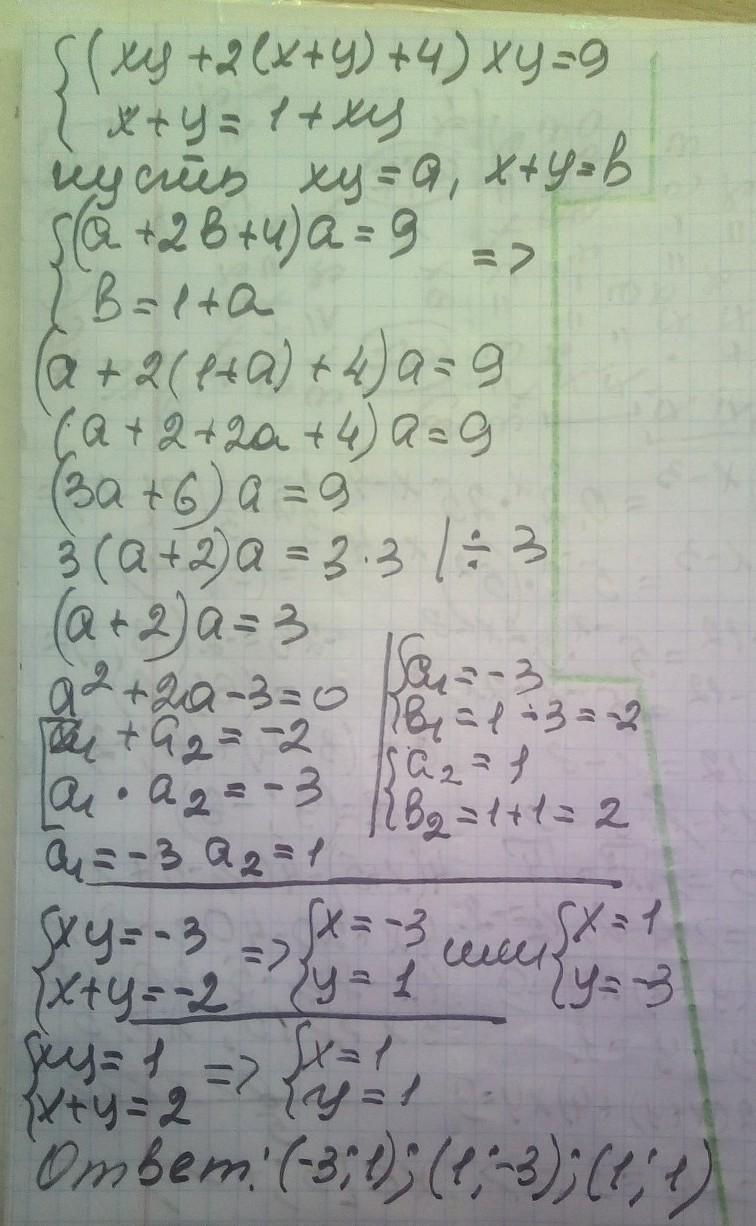 {(xy+2(x+y)+4)xy=9
{x+y=1+xy
пусть xy=a, x+y=b
{(a+2b+4)a=9 =>
{b=1+a
(a+2(1+a)+4)a=9
(a+2+2a+4)a=9
(3a+6)a=9
3(a+2)a=3·3 |÷3
(a+2)a=3
a²+2a-3=0
[a₁+a₂=-2
[a₁·a₂=-3
a₁=-3 a₂=1
{a₁=-3
{b₁=1-3=-2
{a₂=1
{b₂=1+1=2
{xy=-3 => {x=-3 или {x=1
{x+y=-2 {y=1 {y=-3
{xy=1 => {x=1
{x+y=2 {y=1
Ответ: (-3;1);(1;-3);(1;1)